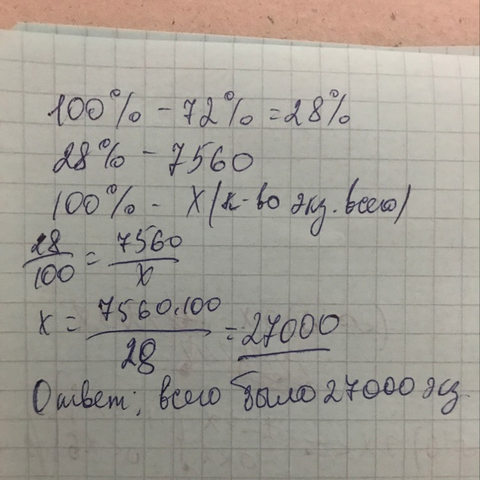 100% - 72% = 28%
28% - 7560
100% - X (к-во экз. всего)
28/100 = 7560/X
X = 7560.100/28 = 27000
Ответ: всего было 27000 экз.